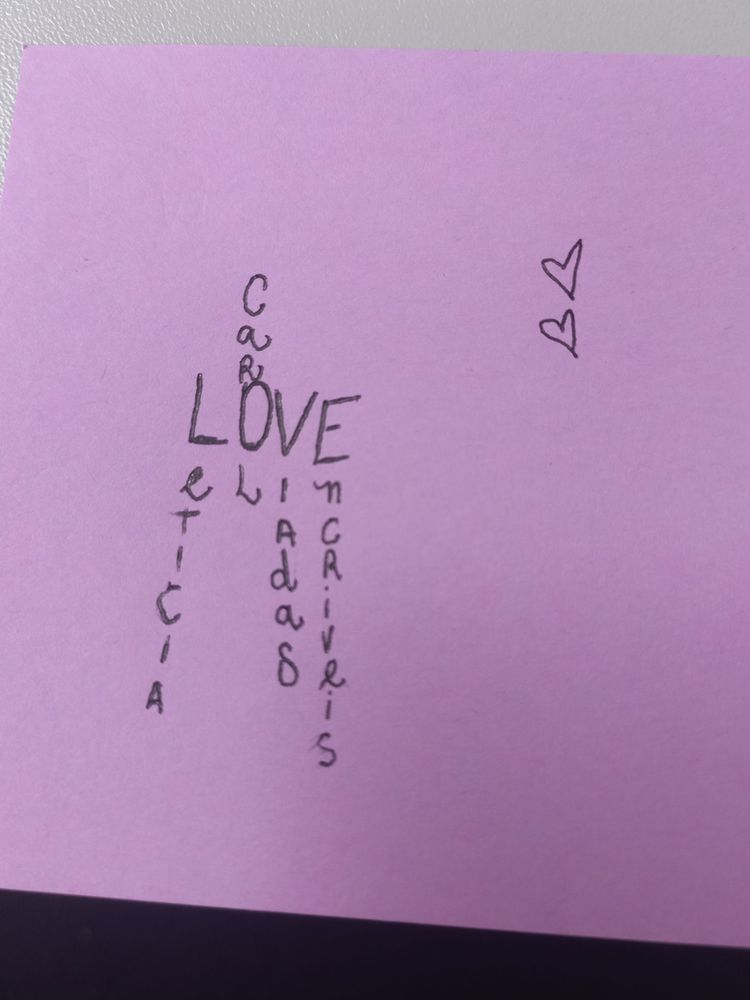 LOVE
LeTICIA
CaROL
VIAdaS
EnCRiveiS